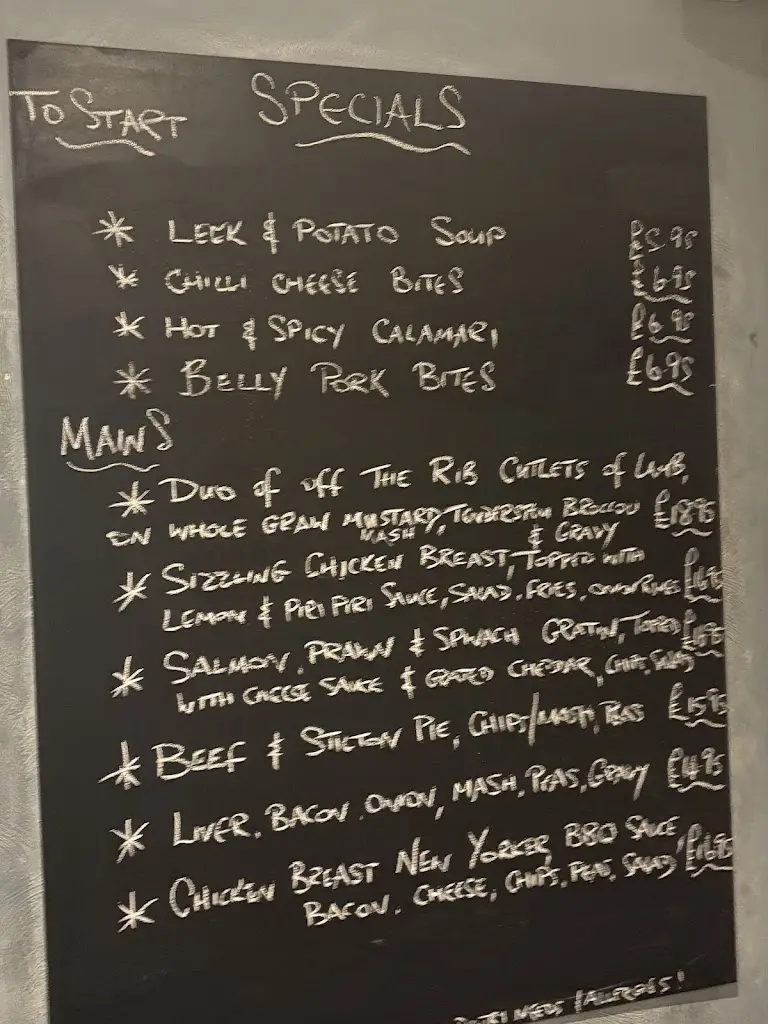 TO START SPECIALS
* LEEK & POTATO SOUP £5.95
* CHILLI CHEESE BITES £6.95
* HOT & SPICY CALAMARI £6.95
* BELLY PORK BITES £6.95
MAINS
* DUO of off THE RIB CUTLETS of LAMB,
ON WHOLE GRAIN MUSTARD, TENDERSTEM BROCCOLI £18.95
MASH & GRAVY
* SIZZLING CHICKEN BREAST, TOPPED WITH
LEMON & PIRI PIRI SAUCE, SALAD, FRIES, ONION RINGS £16.95
* SALMON, PRAWN & SPINACH GRATIN, TOPPED
WITH CHEESE SAUCE & GRATED CHEDDAR, CHIPS, SALAD
* BEEF & STILTON PIE, CHIPS/MASH, PEAS £15.95
* LIVER, BACON, ONION, MASH, PEAS, GRAVY £14.95
* CHICKEN BREAST NEW YORKER, BBQ SAUCE, £16.95
BACON, CHEESE, CHIPS, PEAS, SALAD
NEEDS / ALLERGIES!